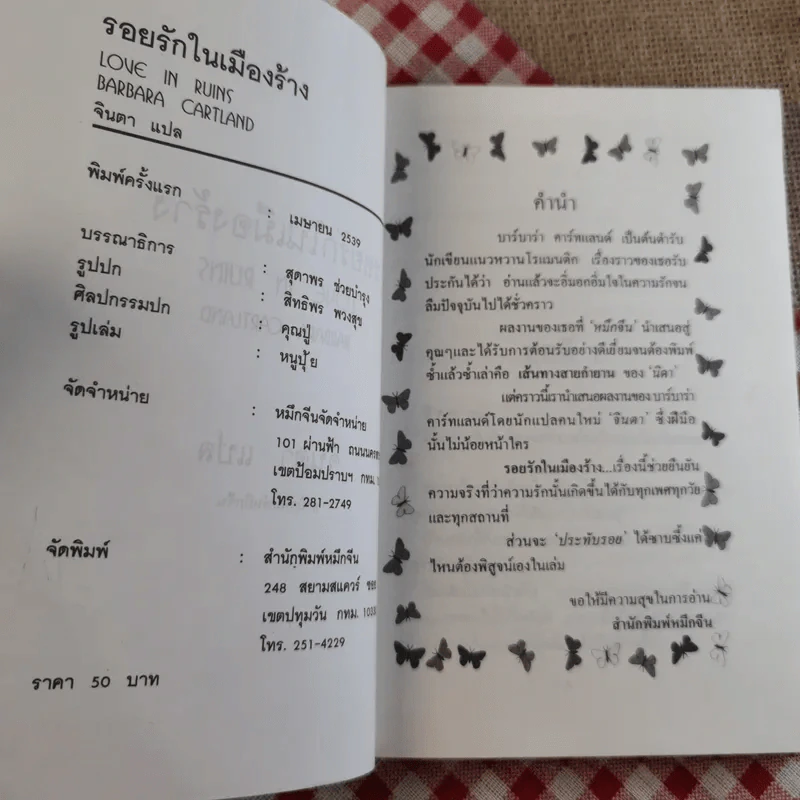 รอยรักในเมืองร้าง
LOVE IN RUINS
BARBARA CARTLAND
จินตา แปล
พิมพ์ครั้งแรก : เมษายน 2539
บรรณาธิการ : สุดาพร ช่วยบำรุง
รูปปก : สิทธิพร พวงสุข
ศิลปกรรมปก : คุณปู่
รูปเล่ม : หนูปุ้ย
จัดจำหน่าย : หมึกจีนจัดจำหน่าย
101 ผ่านฟ้า
เขตป้อมปราบฯ กทม.
โทร. 281-2749
จัดพิมพ์ : สำนักพิมพ์หมึกจีน
248 สยามสแควร์
เขตปทุมวัน กทม.
โทร. 251-4229
ราคา 50 บาท
คำนำ
บาร์บาร่า คาร์ทแลนด์ เป็นต้นตำรับ
นักเขียนแนวหวานโรแมนติก เรื่องราวของเธอรับ
ประกันได้ว่า อ่านแล้วจะอิ่มอกอิ่มใจในความรักจน
ลืมปัจจุบันไปได้ชั่วคราว
ผลงานของเธอที่ 'หมึกจีน' นำเสนอสู่
คุณๆและได้รับการต้อนรับอย่างดีเยี่ยมจนต้องพิมพ์
ซ้ำแล้วซ้ำเล่าคือ เส้นทางสายกำยาน ของ 'นิดา'
แต่คราวนี้เรานำเสนอผลงานของ บาร์บาร่า
คาร์ทแลนด์โดยนักแปลคนใหม่ 'จินตา' ซึ่งฝีมือ
นั้นไม่น้อยหน้าใคร
รอยรักในเมืองร้าง...เรื่องนี้ช่วยยืนยัน
ความจริงที่ว่าความรักนั้นเกิดขึ้นได้กับทุกเพศทุกวัย
และทุกสถานที่
ส่วนจะ 'ประทับรอย' ได้ซาบซึ้งแค่
ไหนต้องพิสูจน์เองในเล่ม
ขอให้มีความสุขในการอ่าน
สำนักพิมพ์หมึกจีน